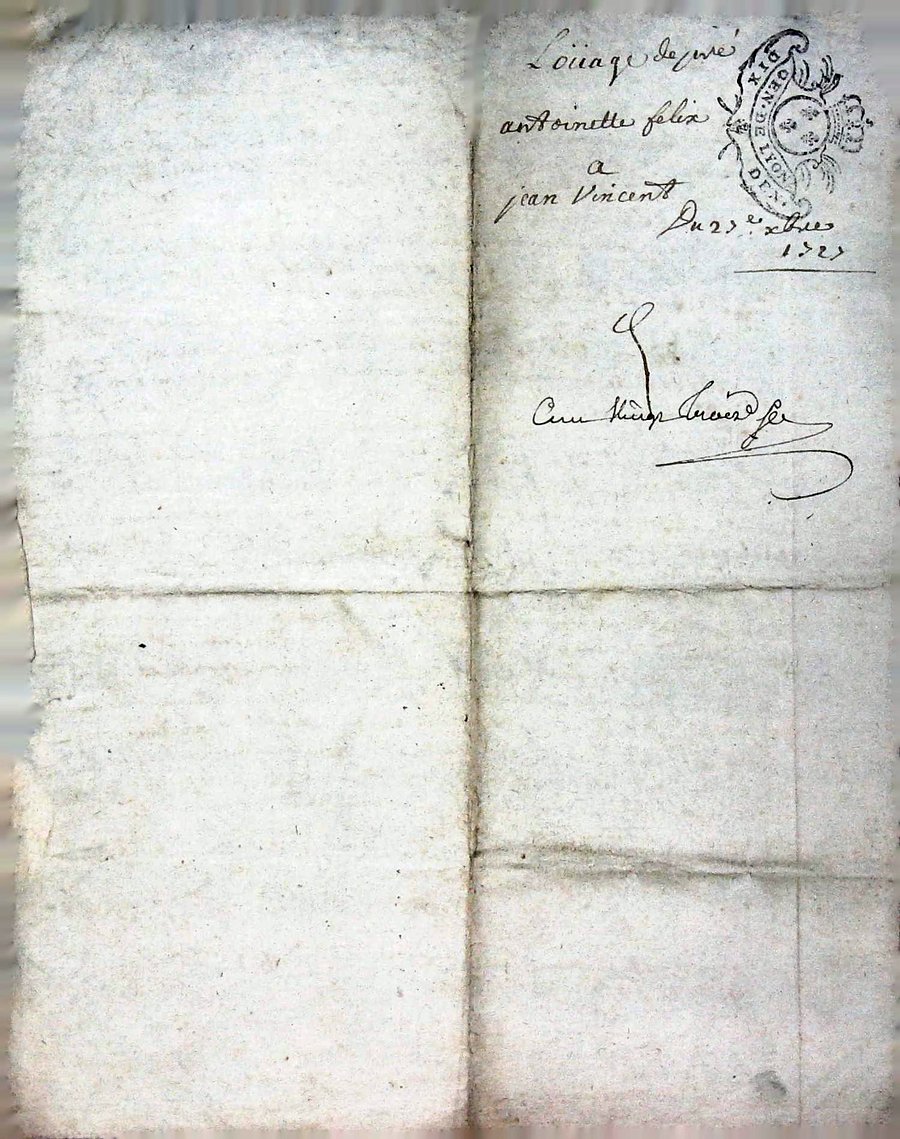 Loüage de prié
antoinette felix
a
jean Vincent
Du 27e. xbre
1727
GEN. DE LYON
DIX DEN.
Cent Vingt trois